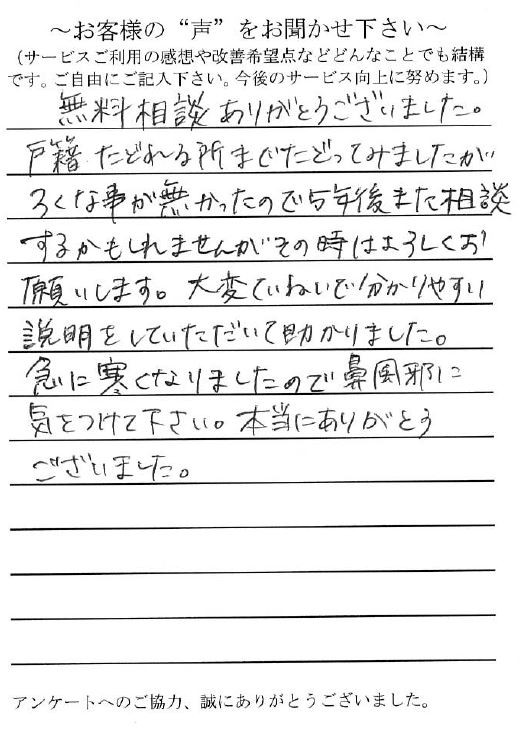 ～お客様の“声”をお聞かせ下さい～
（サービスご利用の感想や改善希望点などどんなことでも結構
です。ご自由にご記入下さい。今後のサービス向上に努めます。）
無料相談ありがとうございました。
戸籍たどれる所までたどってみましたが
ろくな事が無かったので5年後また相談
するかもしれませんがその時はよろしくお
願いします。大変ていねいで分かりやすい
説明をしていただいて助かりました。
急に寒くなりましたので鼻風邪に
気をつけて下さい。本当にありがとう
ございました。
アンケートへのご協力、誠にありがとうございました。